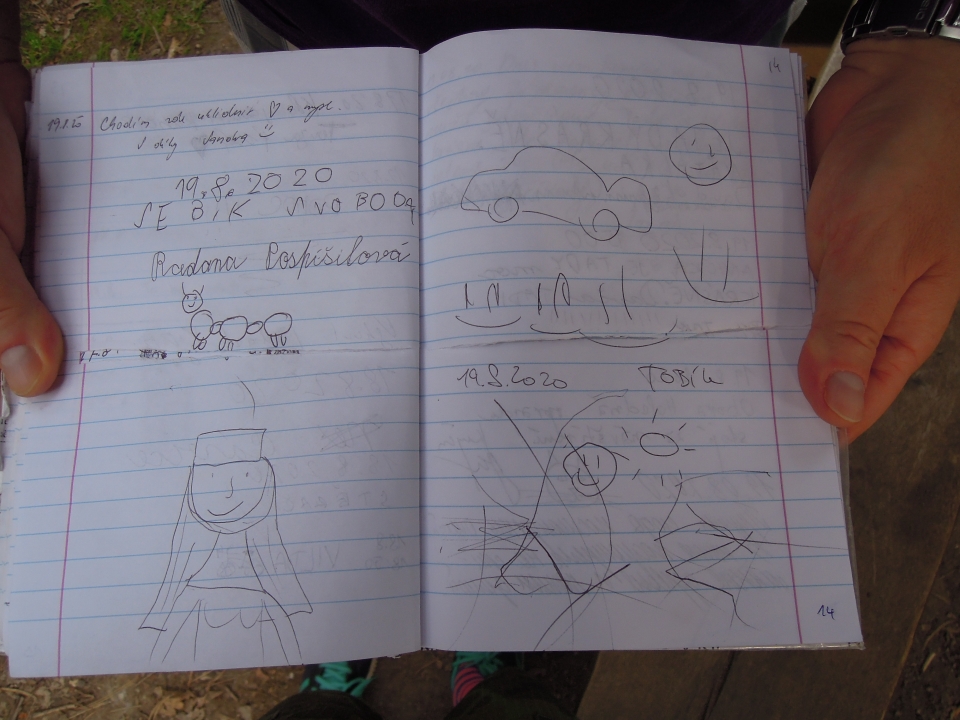 19.8.20 Chodím rok uklidnit ♡ a mysl.
v díly Janovka
19.8.2020
SEBÍK SVOBODA
Radana Pospíšilová
14
19.8.2020 TOBÍK
14